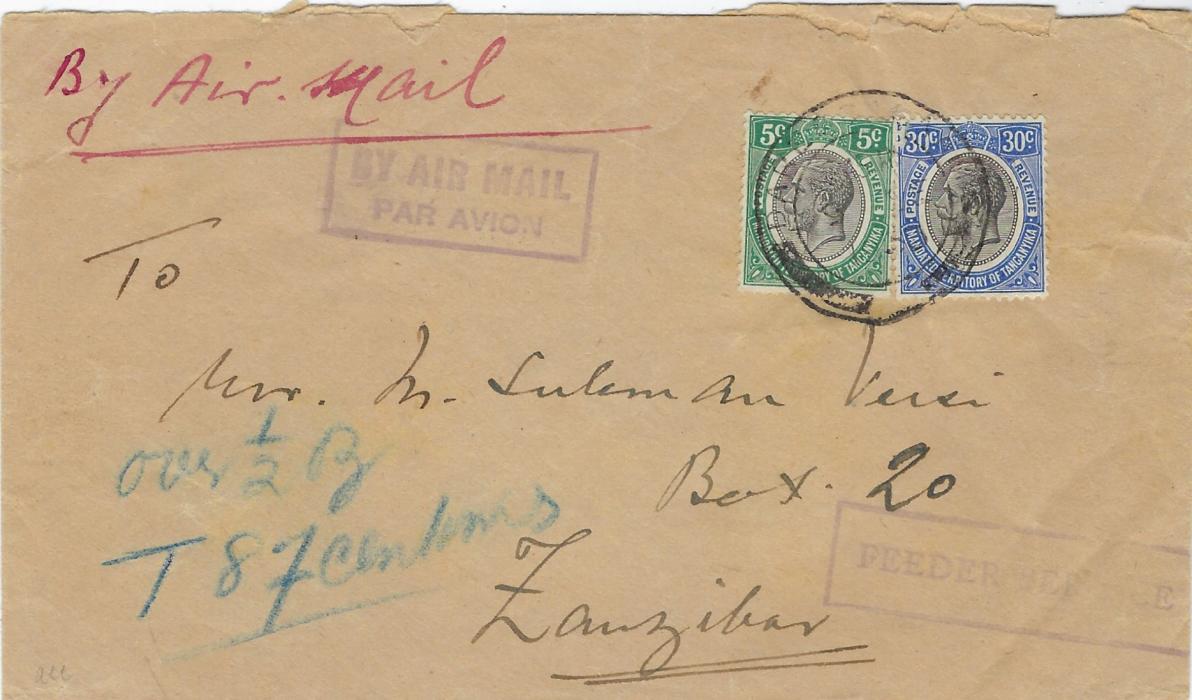 By Air. Mail
BY AIR MAIL
PAR AVION
5c 5c
POSTAGE REVENUE
OF TANGANYIKA
30c 30c
POSTAGE REVENUE
MANDATED TERRITORY OF TANGANYIKA
To
Mr. M. Suleman Versi
Box. 20
Zanzibar
over 1/2 oz
T 87 Centimes
FEEDER